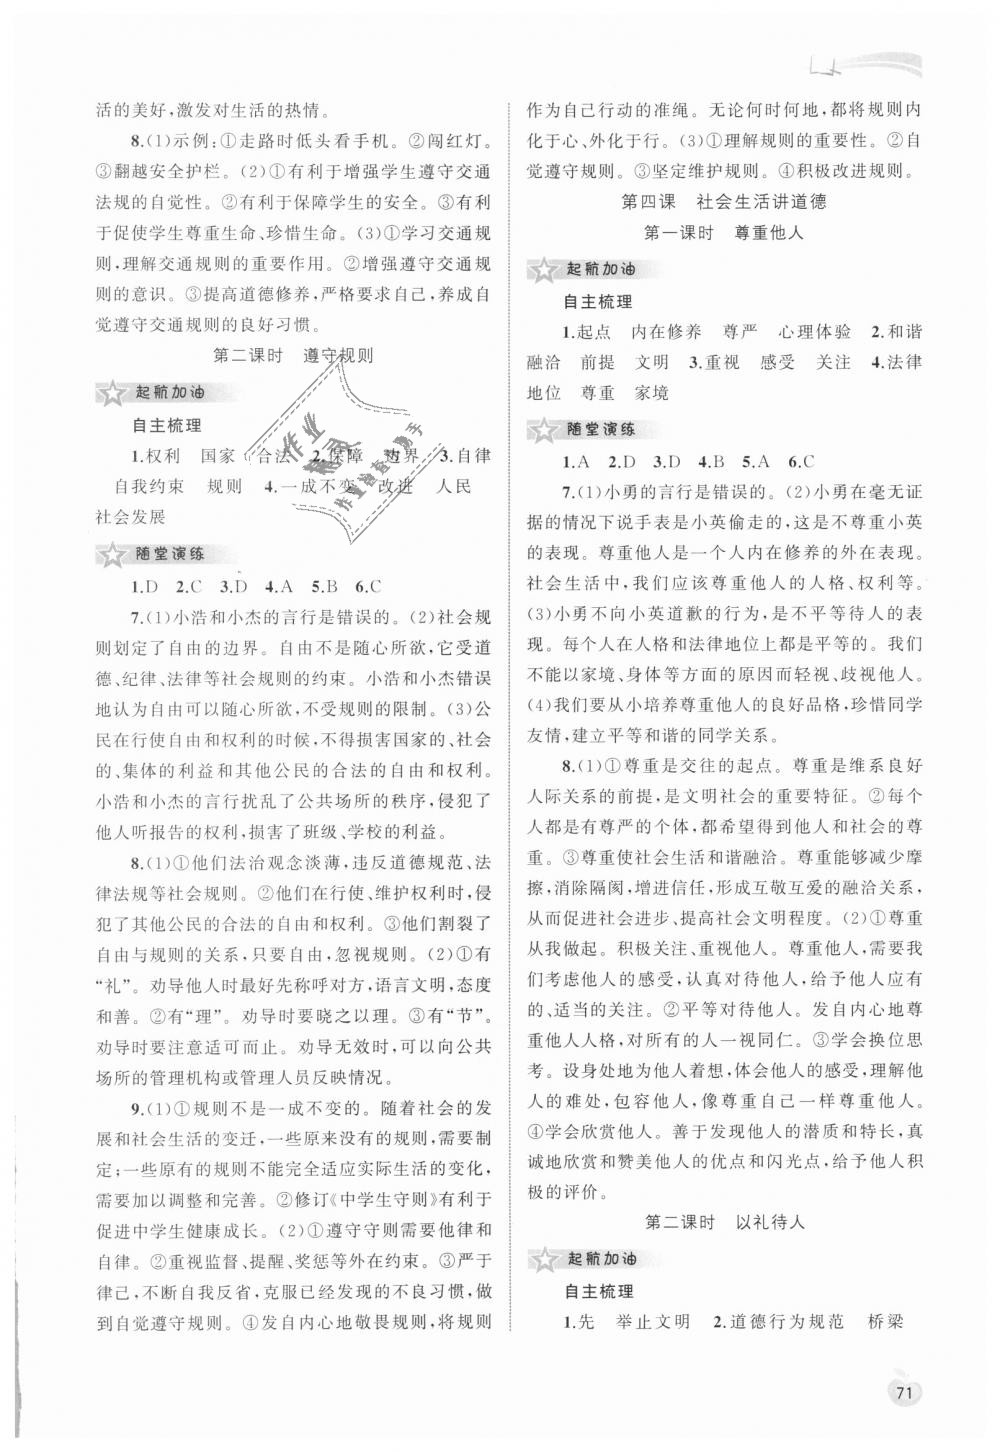 活的美好,激发对生活的热情。
8.(1)示例:①走路时低头看手机。②闯红灯。
③翻越安全护栏。(2)①有利于增强学生遵守交通
法规的自觉性。②有利于保障学生的安全。③有利
于促使学生尊重生命、珍惜生命。(3)①学习交通规
则,理解交通规则的重要作用。②增强遵守交通规
则的意识。③提高道德修养,严格要求自己,养成自
觉遵守交通规则的良好习惯。
第二课时　遵守规则
起航加油
自主梳理
1.权利　国家　合法　2.保障　边界　3.自律
自我约束　规则　4.一成不变　改进　人民
社会发展
随堂演练
1.D　2.C　3.D　4.A　5.B　6.C
7.(1)小浩和小杰的言行是错误的。(2)社会规
则划定了自由的边界。自由不是随心所欲,它受道
德、纪律、法律等社会规则的约束。小浩和小杰错误
地认为自由可以随心所欲,不受规则的限制。(3)公
民在行使自由和权利的时候,不得损害国家的、社会
的、集体的利益和其他公民的合法的自由和权利。
小浩和小杰的言行扰乱了公共场所的秩序,侵犯了
他人听报告的权利,损害了班级、学校的利益。
8.(1)①他们法治观念淡薄,违反道德规范、法
律法规等社会规则。②他们在行使、维护权利时,侵
犯了其他公民的合法的自由和权利。③他们割裂了
自由与规则的关系,只要自由,忽视规则。(2)①有
“礼”。劝导他人时最好先称呼对方,语言文明,态度
和善。②有“理”。劝导时要晓之以理。③有“节”。
劝导时要注意适可而止。劝导无效时,可以向公共
场所的管理机构或管理人员反映情况。
9.(1)①规则不是一成不变的。随着社会的发
展和社会生活的变迁,一些原来没有的规则,需要制
定;一些原有的规则不能完全适应实际生活的变化,
需要加以调整和完善。②修订《中学生守则》有利于
促进中学生健康成长。(2)①遵守守则需要他律和
自律。②重视监督、提醒、奖惩等外在约束。③严于
律己,不断自我反省,克服已经发现的不良习惯,做
到自觉遵守规则。④发自内心地敬畏规则,将规则
作为自己行动的准绳。无论何时何地,都将规则内
化于心、外化于行。(3)①理解规则的重要性。②自
觉遵守规则。③坚定维护规则。④积极改进规则。
第四课　社会生活讲道德
第一课时　尊重他人
起航加油
自主梳理
1.起点　内在修养　尊严　心理体验　2.和谐
融洽　前提　文明　3.重视　感受　关注　4.法律
地位　尊重　家境
随堂演练
1.A　2.D　3.D　4.B　5.A　6.C
7.(1)小勇的言行是错误的。(2)小勇在毫无证
据的情况下说手表是小英偷走的,这是不尊重小英
的表现。尊重他人是一个人内在修养的外在表现。
社会生活中,我们应该尊重他人的人格、权利等。
(3)小勇不向小英道歉的行为,是不平等待人的表
现。每个人在人格和法律地位上都是平等的。我们
不能以家境、身体等方面的原因而轻视、歧视他人。
(4)我们要从小培养尊重他人的良好品格,珍惜同学
友情,建立平等和谐的同学关系。
8.(1)①尊重是交往的起点。尊重是维系良好
人际关系的前提,是文明社会的重要特征。②每个
人都是有尊严的个体,都希望得到他人和社会的尊
重。③尊重使社会生活和谐融洽。尊重能够减少摩
擦,消除隔阂,增进信任,形成互敬互爱的融洽关系,
从而促进社会进步、提高社会文明程度。(2)①尊重
从我做起。积极关注、重视他人。尊重他人,需要我
们考虑他人的感受,认真对待他人,给予他人应有
的、适当的关注。②平等对待他人。发自内心地尊
重他人人格,对所有的人一视同仁。③学会换位思
考。设身处地为他人着想,体会他人的感受,理解他
人的难处,包容他人,像尊重自己一样尊重他人。
④学会欣赏他人。善于发现他人的潜质和特长,真
诚地欣赏和赞美他人的优点和闪光点,给予他人积
极的评价。
第二课时　以礼待人
起航加油
自主梳理
1.先　举止文明　2.道德行为规范　桥梁
71
作业
精灵
作业检查小助手